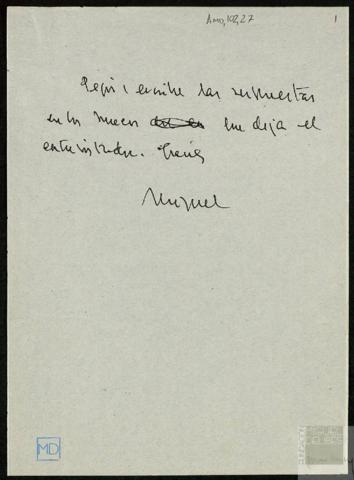 AMD,102,27
1
Pepi: escribe las respuestas
en los huecos que deja el
entrevistador. Gracias
Miguel
MD